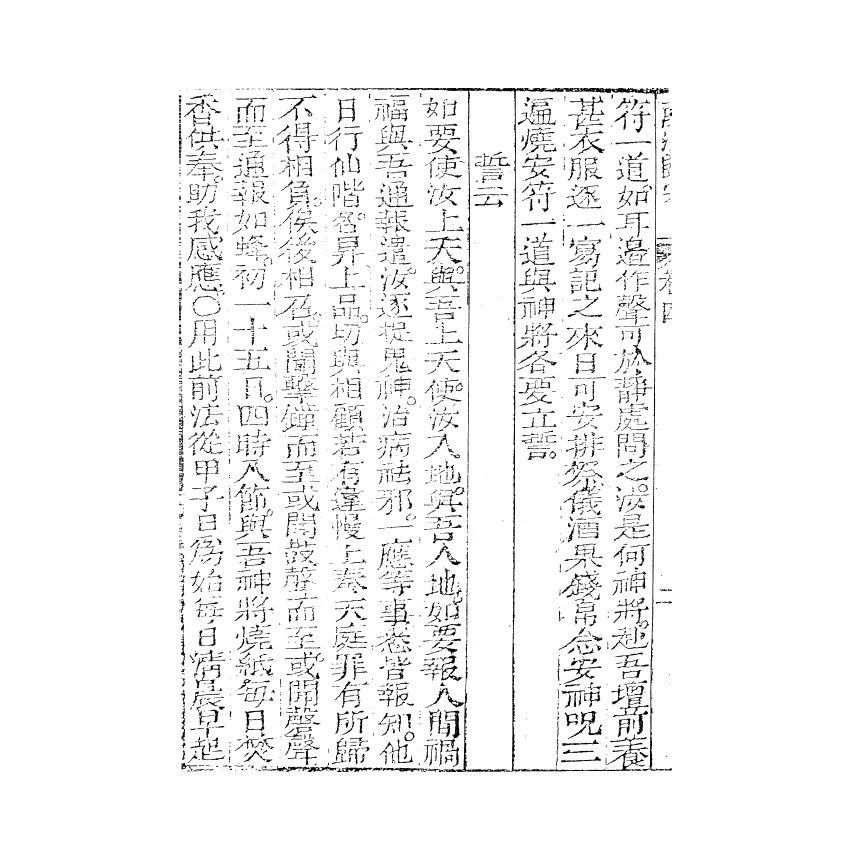 符一道。如耳邉作聲可於静處問之。汝是何神將。赴吾壇前。養
甚衣服逐一寫記之來日可安排祭儀酒果錢帛念安神呪三
遍燒安符一道與神將各要立誓。
誓云
如要使汝上天。與吾上天使。汝入地。與吾入地。如要報人間禍
福與吾通報遣汝。逐捉鬼神。治病祛邪。一應等事悉皆報知。他
日行仙階。各昇上品。切與相顧若有違慢上奏天庭罪有所歸
不得相負。俟後相召。或聞擊鐘而至或聞鼓聲而至。或聞磬聲
而至通報如蜂。初一十五日。四時八節。與吾神將燒紙。每日焚
香供奉。助我感應。○用此前法從甲子日爲始每日清晨早起